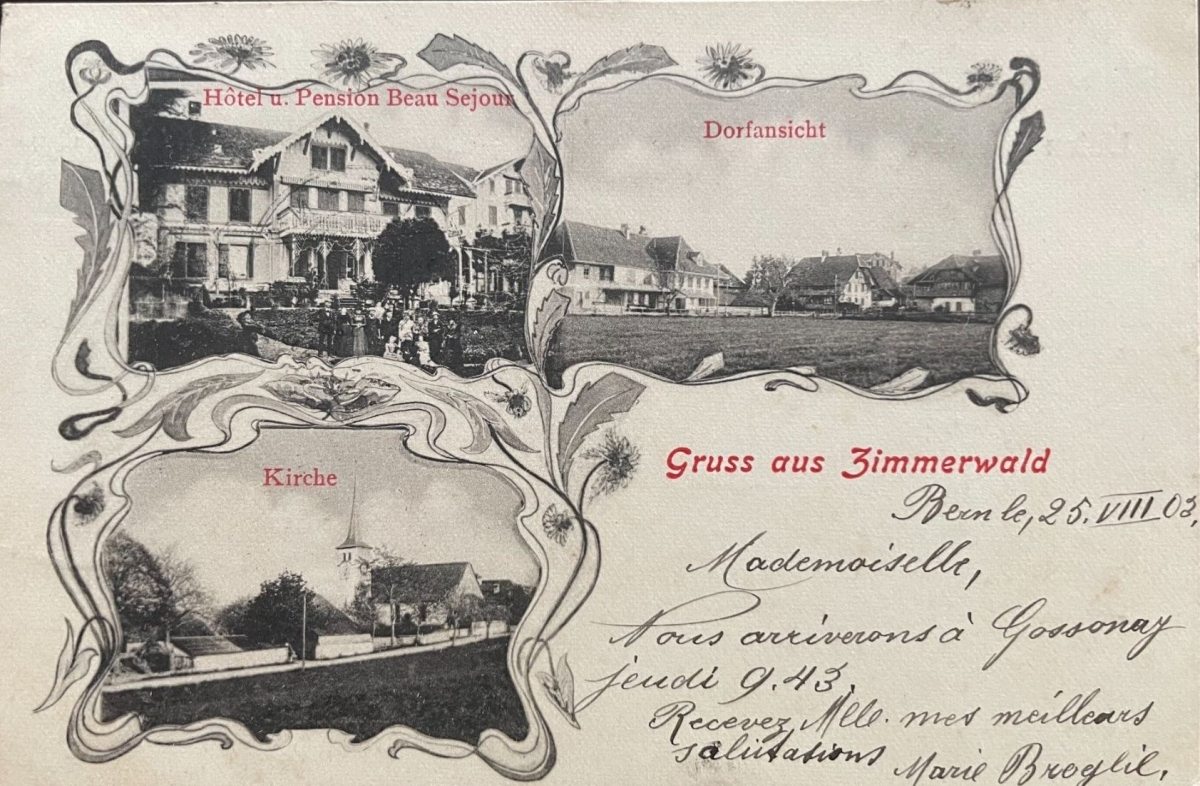 Hôtel u. Pension Beau Sejour
Dorfansicht
Kirche
Gruss aus Zimmerwald
Bern le, 25. VIII 03,
Mademoiselle,
Nous arriverons à Gossonay
jeudi 9.43.
Recevez Mlle. mes meilleurs
salutations
Marie